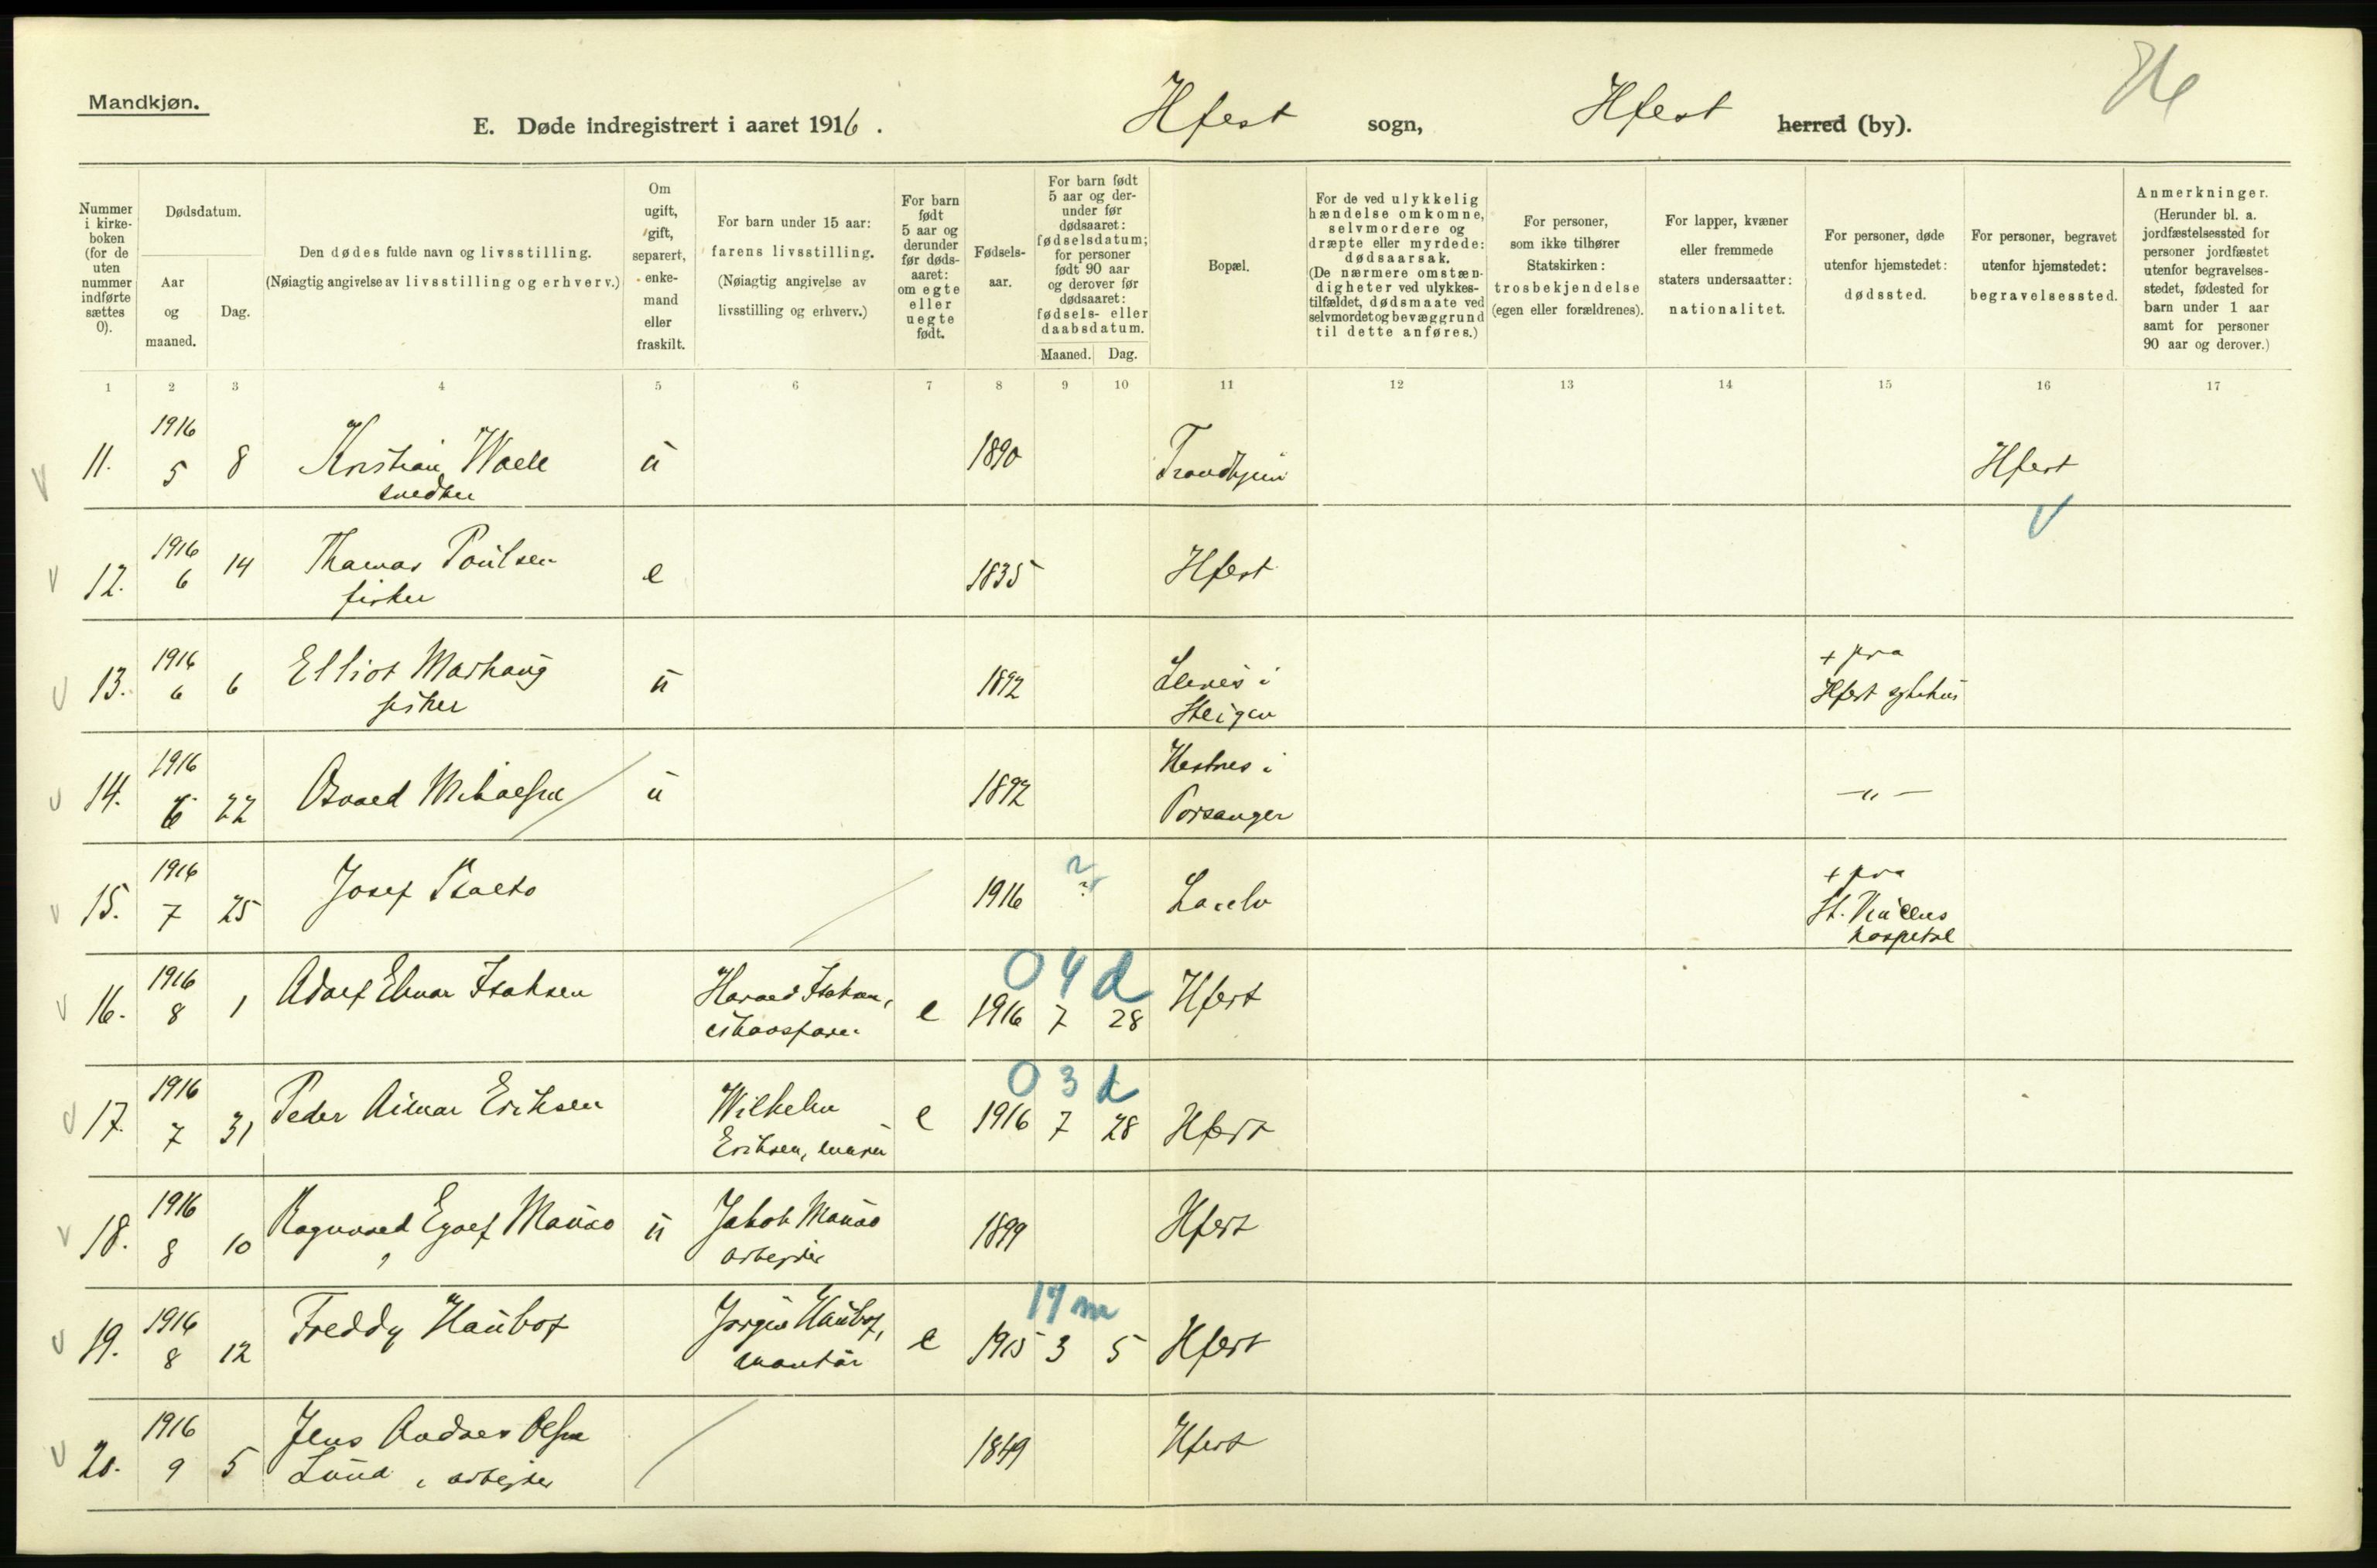 Mandkjøn.
E. Døde indregistrert i aaret 1916. Hfest sogn, Hfest herred (by).
Nummer i kirkeboken (for de uten nummer indførte sættes 0).
Dødsdatum.
Aar og maaned.
Dag.
Den dødes fulde navn og livsstilling.
(Nøiagtig angivelse av livsstilling og erhverv.)
Om ugift, gift, separert, enkemand eller fraskilt.
For barn under 15 aar:
farens livsstilling.
(Nøiagtig angivelse av livsstilling og erhverv.)
For barn født 5 aar og derunder før dødsaaret: om egte eller uegte født.
Fødselsaar.
For barn født 5 aar og derunder før dødsaaret: fødselsdatum; for personer født 90 aar og derover før dødsaaret: fødsels- eller daabsdatum.
Maaned. Dag.
Bopæl.
For de ved ulykkelig hændelse omkomne, selvmordere og dræpte eller myrdede: dødsaarsak.
(De nærmere omstændigheter ved ulykkestilfældet, dødsmaate ved selvmordet og bevæggrund til dette anføres.)
For personer, som ikke tilhører Statskirken: trosbekjendelse (egen eller forældrenes).
For lapper, kvæner eller fremmede staters undersaatter: nationalitet.
For personer, døde utenfor hjemstedet: dødssted.
For personer, begravet utenfor hjemstedet: begravelsessted.
Anmerkninger.
(Herunder bl. a. jordfæstelsessted for personer jordfæstet utenfor begravelsesstedet, fødested for barn under 1 aar samt for personer 90 aar og derover.)
1 2 3 4 5 6 7 8 9 10 11 12 13 14 15 16 17
V 11. 1916 5 8 Kristian Woll u 1890 Trondhjem Hfest
snedker
V 12. 1916 6 14 Thomas Poulsen e 1835 Hfest
fisker
V 13. 1916 6 6 Elliot Marhaug u 1892 i + paa
fisker Steigen Hfest sykehus
V 14. 1916 6 22 Osvald Mikalsen u 1892 Hestnes i — " —
Porsanger
V 15. 1916 7 25 Josef 1916 ? + paa
St. hospital
04 d
V 16. 1916 8 1 Adolf Isaksen Harald Isaksen, e 1916 7 28 Hfest
03 d
V 17. 1916 7 31 Peder Eriksen Wilhelm e 1916 7 28 Hfest
Eriksen, murer
V 18. 1916 8 10 Ragnvald u Jakob 1899 Hfest
arbeider
17 m
V 19. 1916 8 12 Freddy Haubof Jørgen Haubof, e 1915 3 5 Hfest
montør
V 20. 1916 9 5 Jens Andreas Olsen 1849 Hfest
Lund, arbeider